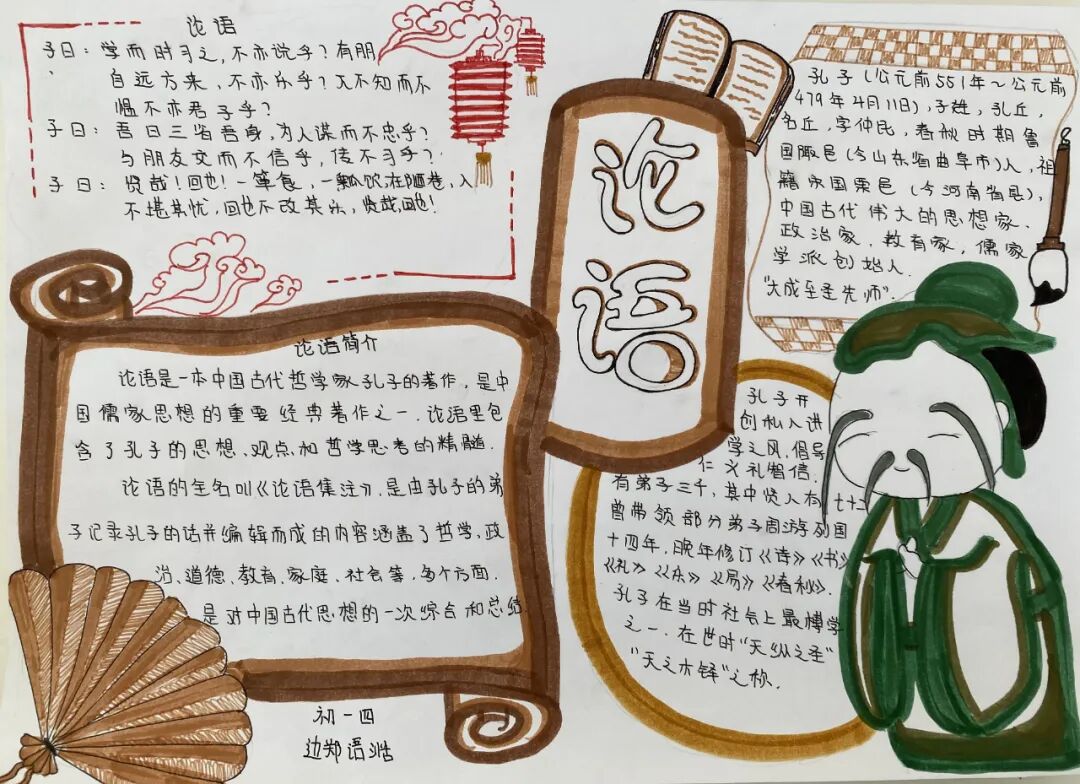 论语
子曰：学而时习之，不亦说乎？有朋
自远方来，不亦乐乎？人不知而不
愠不亦君子乎？
子曰：吾日三省吾身，为人谋而不忠乎？
与朋友交而不信乎，传不习乎？
子曰：贤哉！回也！一箪食，一瓢饮，在陋巷，人
不堪其忧，回也不改其乐，贤哉，回也！
论语
孔子（公元前551年～公元前
479年4月11日），子姓，孔氏，
名丘，字仲尼，春秋时期鲁
国陬邑（今山东省曲阜市）人，祖
籍宋国栗邑（今河南省），
中国古代伟大的思想家、
政治家，教育家，儒家
学派创始人.
"大成至圣先师".
论语简介
论语是一本中国古代哲学家孔子的著作，是中
国儒家思想的重要经典著作之一.论语里包
含了孔子的思想、观点和哲学思考的精髓.
论语的全名叫《论语集注》，是由孔子的弟
子记录孔子的话并编辑而成的内容涵盖了哲学，政
治、道德、教育、家庭、社会等，多个方面.
是对中国古代思想的一次综合和总结
孔子开
创私人讲
学之风，倡导
仁义礼智信.
有弟子三千，其中贤人有七十二
曾带领部分弟子周游列国
十四年，晚年修订《诗》《书》
《礼》《乐》《易》《春秋》.
孔子在当时社会上最博学
之一.在世时"天纵之圣"
"天之木铎"之称.
初一四
边郑语